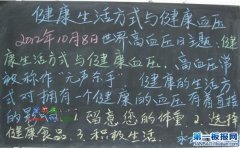 健康生活方式与健康血压
2012年10月8日世界高血压日主题、健
康生活方式与健康血压、高血压常
被称作“无声杀手” 健康的生活方
式对拥有一个健康的血压有着直接
的 1、留意您的体重 2、选择
健康食品 3、积极生活
第一板报网